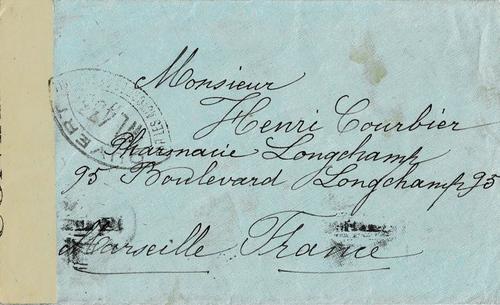 Monsieur
Henri Courbier
Pharmacie Longchamp
95 Boulevard Longchamp 95
Marseille France
OUVERT